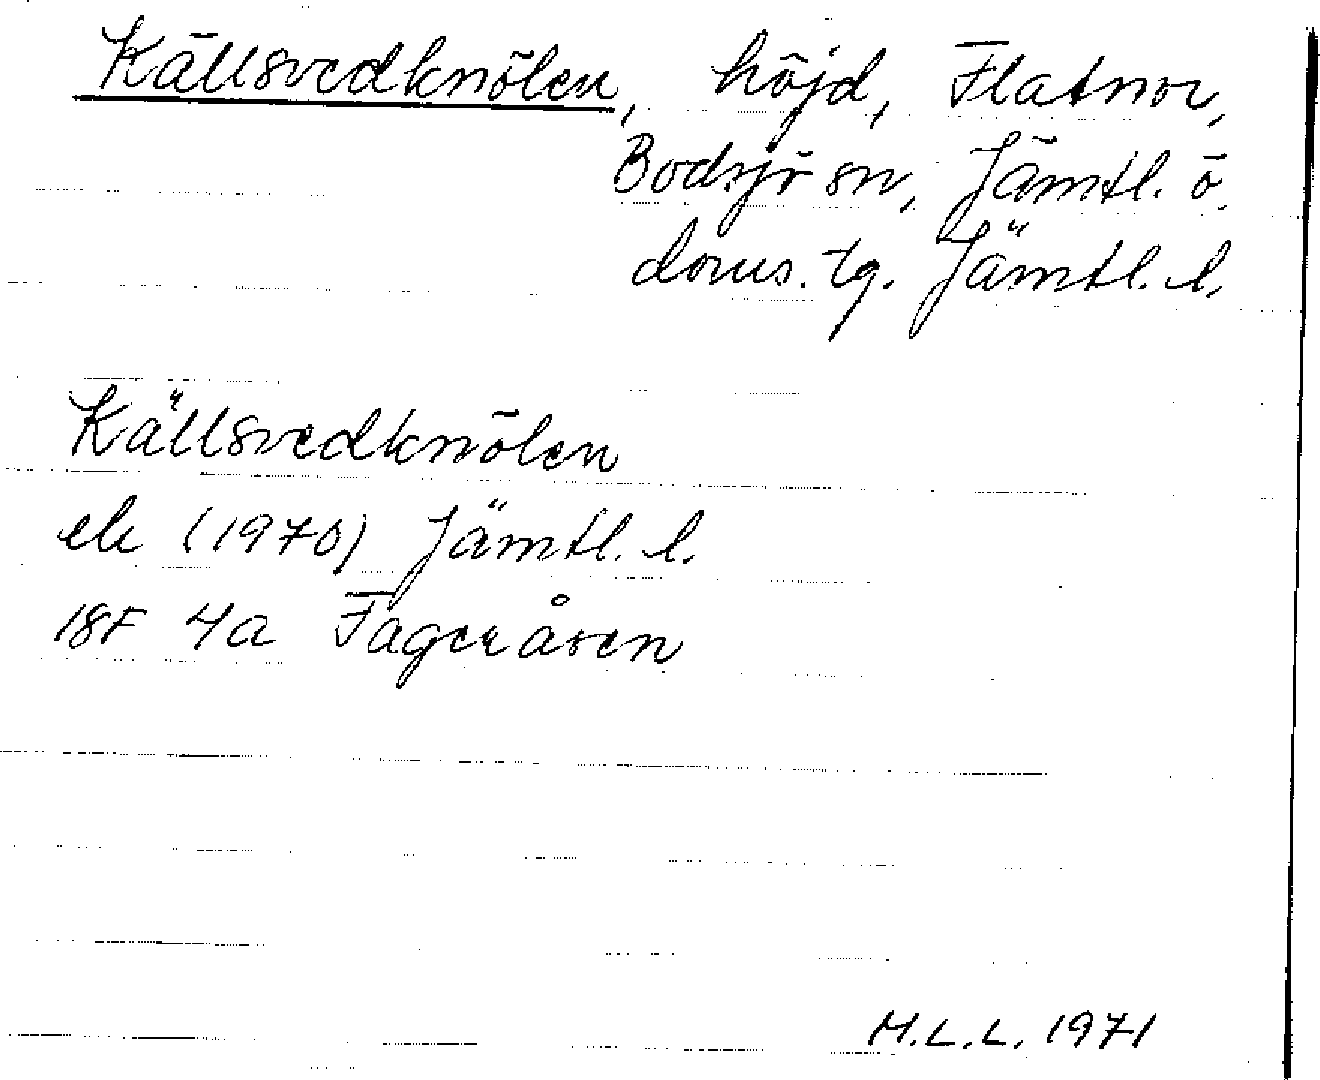 Källsvedknölen, höjd, Flatnor,
Bodsjö sn, Jämtl. ö.
doms. tg. Jämtl. l.
Källsvedknölen
ek (1970) Jämtl. l.
18F 4a Fageråsen
M.L.L. 1971